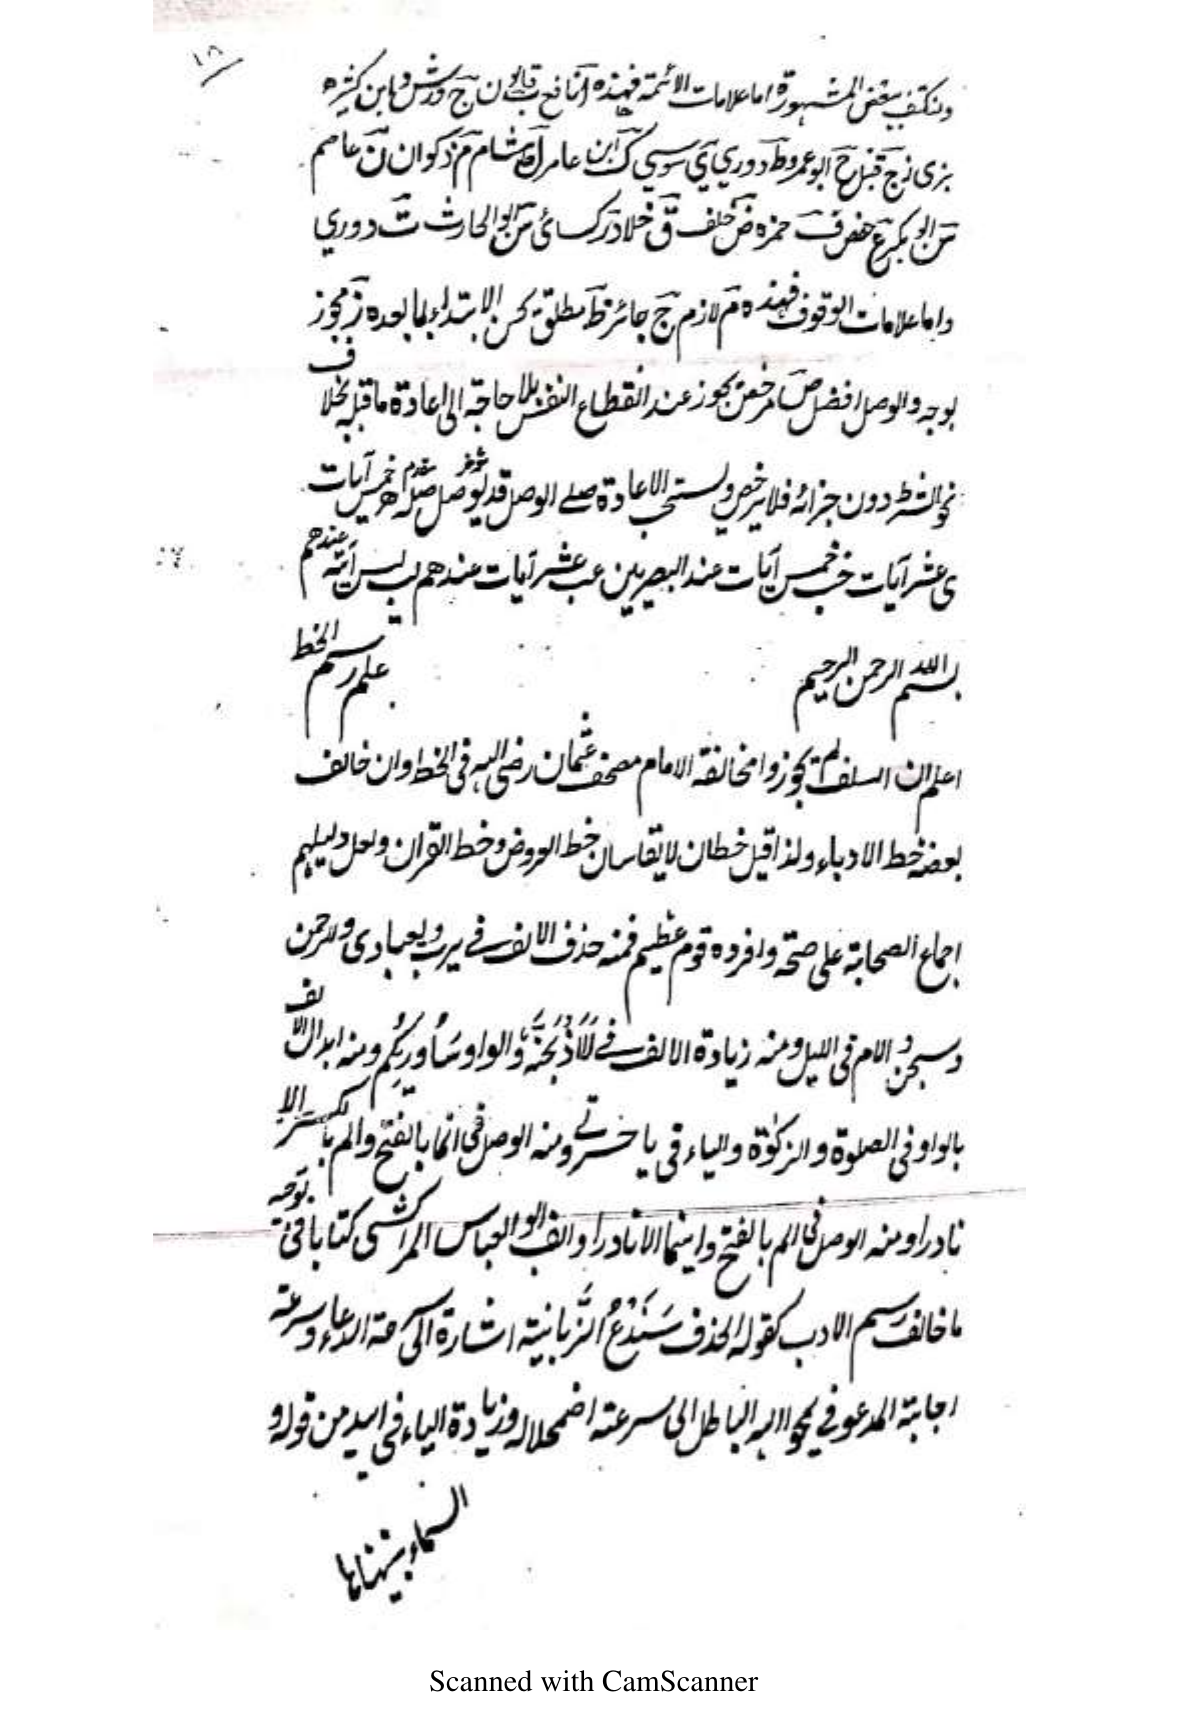 ١٨
ولنكتف ببعض المشهورة اما علامات الائمة فهذه آ نافع ب قالون ج ورش د ابن كثير ه
بزى ز قنبل ح ابو عمرو ط دوري ي سوسي ك ابن عامر ل هشام م ذكوان ن عاصم
ص ابو بكر ع حفص ف حمزه ض خلف ق خلاد ر كسائى س ابو الحارث ت دوري
واما علامات الوقوف فهذه م لازم ج جائز ط مطلق يحسن الابتداء بما بعده ز مجوز
بوجه والوصل افضل ص مرخص يجوز عند انقطاع النفس بلا حاجة الى اعادة ما قبله بخلاف
نحو الشرط دون جزائه فلا يرخص ويستحب الاعادة صلے الوصل قد يوصل خمس آيات
ى عشر آيات خب خمس آيات عند البصريين عب عشر آيات عندهم لب ليس آية عندهم
بسم الله الرحمن الرحيم علم رسم الخط
اعلم ان السلف لم يجوزوا مخالفة الامام مصحف عثمان رضى الله فى الخط وان خالف
بعضه خط الادباء ولذا قيل خطان لا يقاسان خط العروض وخط القران ولعل دليلهم
اجماع الصحابة على صحته وافرده قوم عظيم فمنه حذف الالف فے يرب ويعبادى والرحمن
وسبحن و اللام فى الليل ومنه زيادة الالف فے لَاَاذْبَحَنَّهٗ والواو سَاُورِيكُم ومنه ابدال الالف
بالواو فى الصلوة والزكوٰة والياء فى يا حسرتے ومنه الوصل فى انما بالفتح والم بالكسر الا
نادرا ومنه الوصل فى الم بالفتح واينما الا نادرا والف ابو العباس المراكشى كتابا فى توجيه
ما خالف رسم الادب كقوله الحذف سَنَدْعُ الزَّبانية اشارة الى سرعة الدعاء وسرعة
اجابة المدعو فے يمحو االله الباطل الى سرعة اضمحلاله وزيادة الياء فى اييد من قوله و
السماء بنيناها
Scanned with CamScanner